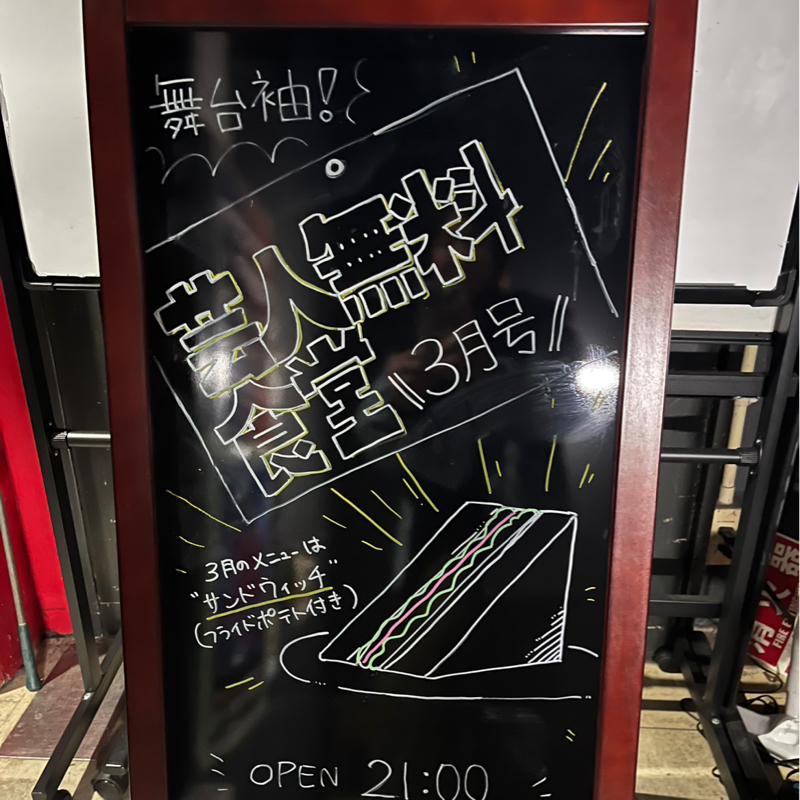 舞台袖!
芸人無料
食堂 3月号
3月のメニューは
"サンドウィッチ"
(フライドポテト付き)
OPEN 21:00
消火器
FIRE E